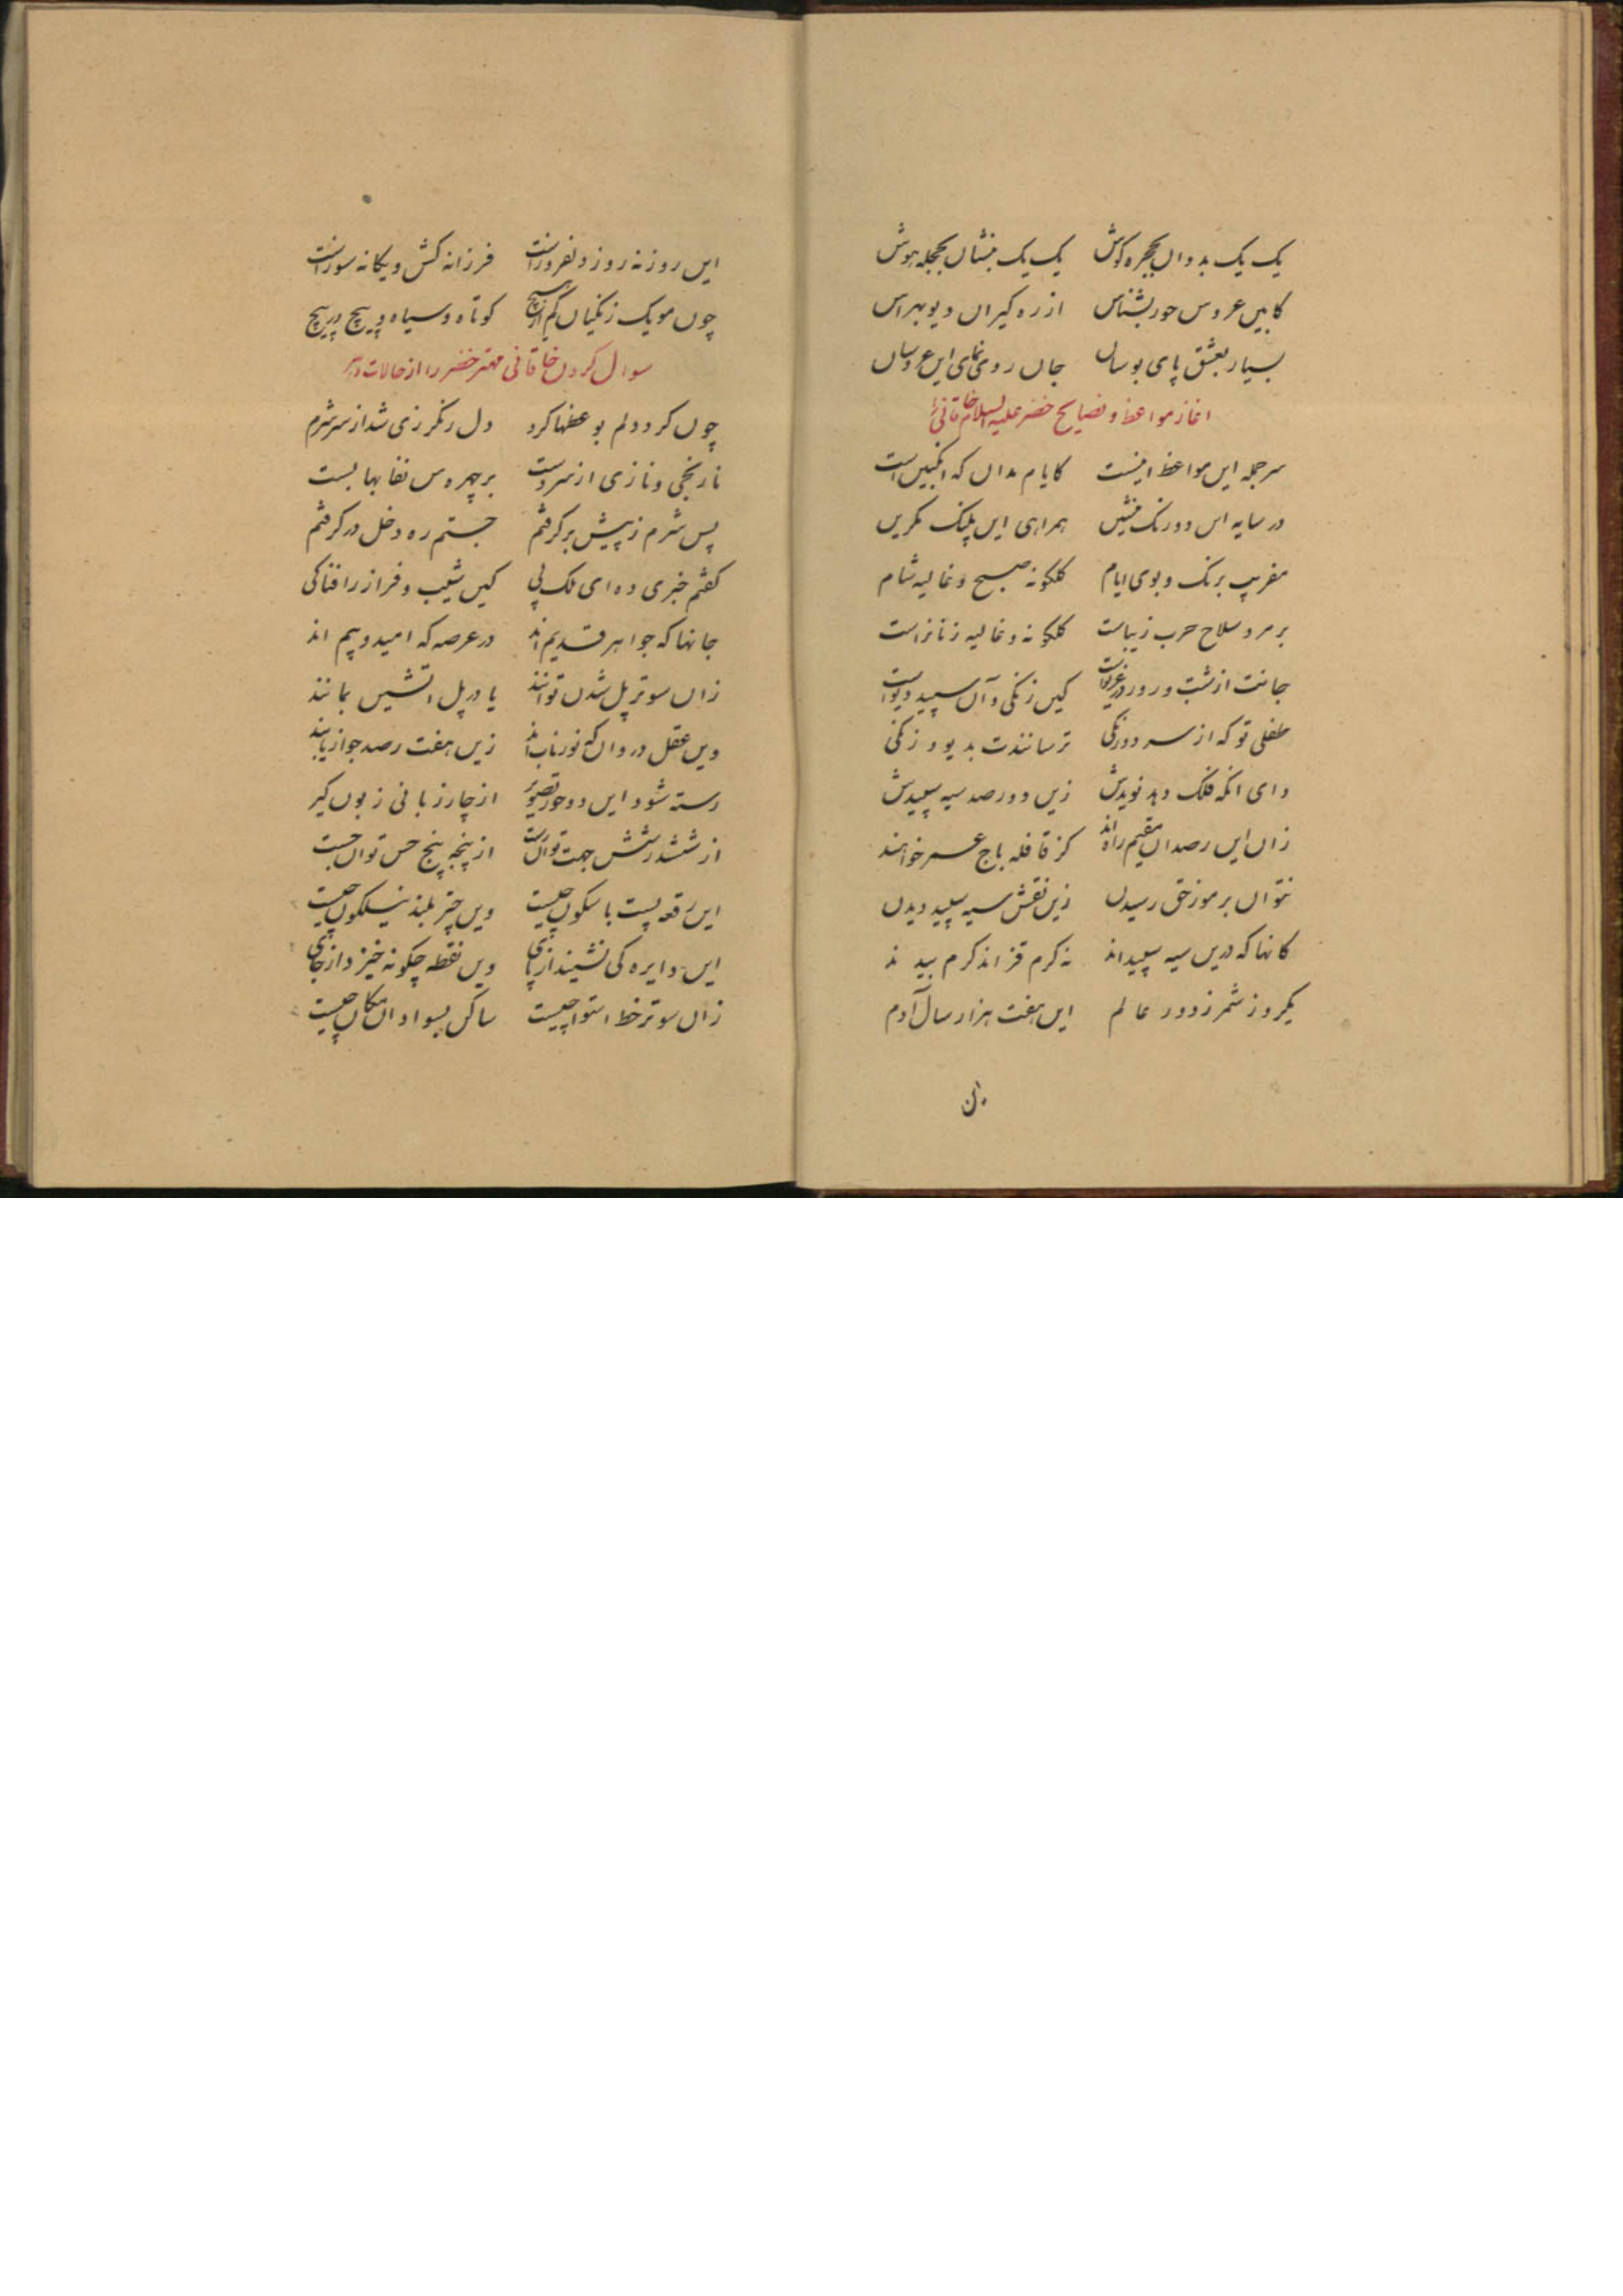 یک یک بدوان بحجره گوش یک یک بنشان بحجله هوش
کابین عروس حور بشناس از ره گیران دیو بهراس
بسیار بعشق پای بوسان جان روی نمای این عروسان
اغاز مواعظ و نصایح خضر علیه السلام خاقانی را
سرجمله این مواعظ اینست کایام مدان که انگبین است
در سایه اس دورنک منشین همراهی این پلنک مکزین
مفریب برنک و بوی ایام کلکونه صبح و غالیه شام
بر مرد سلاح حرب زیباست کلکونه و غالیه زنانراست
جانت از شب و روز در غریواست کین زنکی و آن سپید دیواست
طفلی تو که از سر دورنکی ترسانندت بدیو و زنکی
وای انکه فلک دهد نویدش زین دو رصد سیه سپیدش
زان این رصدان مقیم راه اند کز قافله باج عمر خواهند
نتوان برموز حق رسیدن زین نقش سیه سپید دیدن
کانها که درین سیه سپیداند نه کرم قز اند کرم بیدند
یکروز شمر ز دور عالم این هفت هزار سال آدم
این روزنه روز و نفروزاست فرزانه کش و یکانه سوزاست
چون مویک زنکیان کم از هیچ کوتاه و سیاه و پیچ در پیچ
سوال کردن خاقانی مهتر خضر را از حالات
چون کرد دلم بوعظها کرم دل رنکرزی شد از سر شرم
نارنجی و نازی از سر دست بر چهره من نقابها بست
پس شرم ز پیش برکرفتم جستم ره دخل درکرفتم
کفتم خبری ده ای ملک پی کین شیب و فراز را فنا کی
جانها که جواهر قدیم اند در عرصه که امید و بیم اند
زان سوتر پل شدن توانند یا در پل اتشین بمانند
وین عقل و روان که نور ناب اند زین هفت رصد جواز یابند
رسته شود این دو حور تصویر از چار زبانی زبون کیر
از ششدر شش جهت توان رست از پنجه پنج حس توان جست
این رقعه پست باسکون چیست وین چتر بلند نیلکون چیست
این دایره کی نشیند از پای وین نقطه چکونه خیزد از جای
زان سوتر خط استوا چیست ساکن بسواد ان مکان چیست